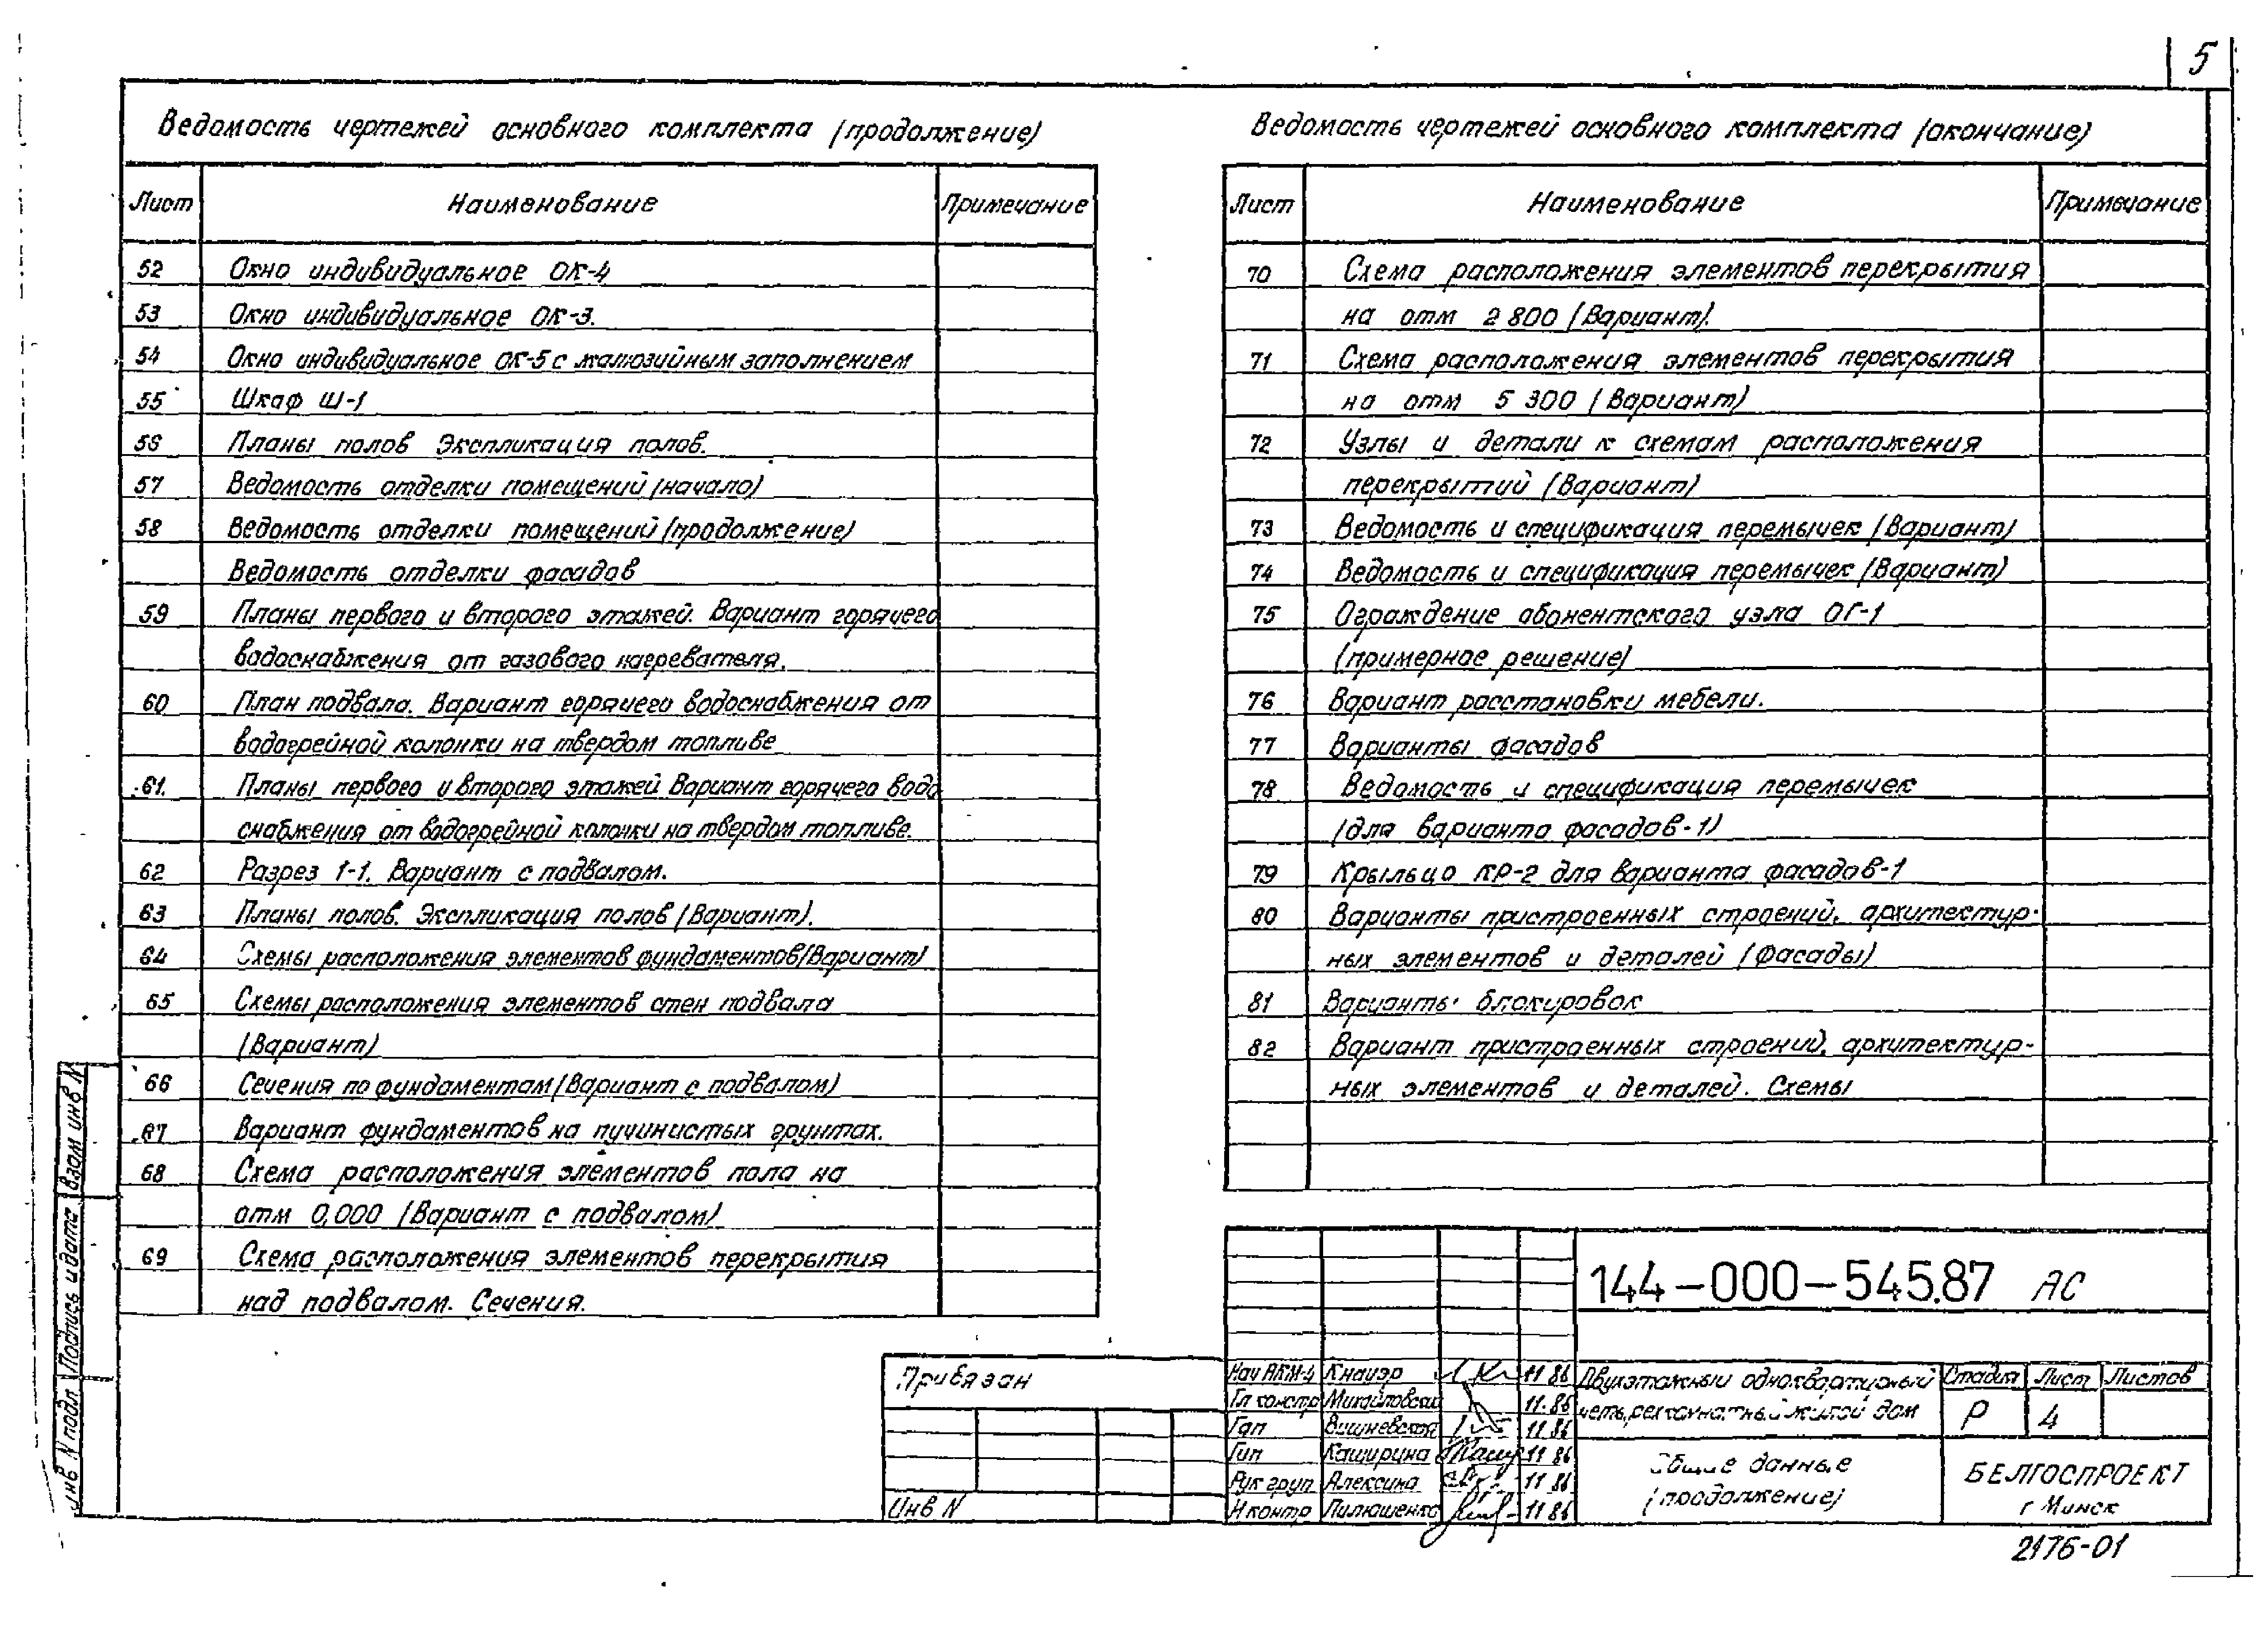 5
Ведомость чертежей основного комплекта (продолжение)
Лист Наименование Примечание
52 Окно индивидуальное ОК-4
53 Окно индивидуальное ОК-3.
54 Окно индивидуальное ОК-5 с жалюзийным заполнением
55 Шкаф Ш-1
56 Планы полов Экспликация полов.
57 Ведомость отделки помещений (начало)
58 Ведомость отделки помещений (продолжение)
Ведомость отделки фасадов
59 Планы первого и второго этажей. Вариант горячего
водоснабжения от газового нагревателя.
60 План подвала. Вариант горячего водоснабжения от
водогрейной колонки на твердом топливе
61. Планы первого и второго этажей Вариант горячего водо
снабжения от водогрейной колонки на твердом топливе.
62 Разрез 1-1. Вариант с подвалом.
63 Планы полов. Экспликация полов (Вариант).
64 Схемы расположения элементов фундаментов (Вариант)
65 Схемы расположения элементов стен подвала
(Вариант)
66 Сечения по фундаментам (Вариант с подвалом)
67 Вариант фундаментов на пучинистых грунтах.
68 Схема расположения элементов пола на
отм 0,000 (Вариант с подвалом)
69 Схема расположения элементов перекрытия
над подвалом. Сечения.
Ведомость чертежей основного комплекта (окончание)
Лист Наименование Примечание
70 Схема расположения элементов перекрытия
на отм 2 800 (Вариант).
71 Схема расположения элементов перекрытия
на отм 5 300 (Вариант)
72 Узлы и детали к схемам расположения
перекрытий (Вариант)
73 Ведомость и спецификация перемычек (Вариант)
74 Ведомость и спецификация перемычек (Вариант)
75 Ограждение абонентского узла ОГ-1
(примерное решение)
76 Вариант расстановки мебели.
77 Варианты фасадов
78 Ведомость и спецификация перемычек
(для варианта фасадов-1)
79 Крыльцо КР-2 для варианта фасадов-1
80 Варианты пристроенных строений, архитектур-
ных элементов и деталей (Фасады)
81 Варианты блокировок
82 Вариант пристроенных строений, архитектур-
ных элементов и деталей. Схемы
144-000-545.87 АС
Привязан
Инв N
Нач АКМ-4 Кнауэр 11 86
Гл констр Михайловский 11.86
Гап Вишневская 11 86
Гип Каширина 11 86
Рук груп Алексина 11 86
Н контр Пилюшенко 11 86
Двухэтажный одноквартирный
четырехкомнатный жилой дом
Стадия Лист Листов
Р 4
Общие данные
(продолжение)
БЕЛГОСПРОЕКТ
г Минск
2176-01
Инв N подл Подпись и дата Взам инв N